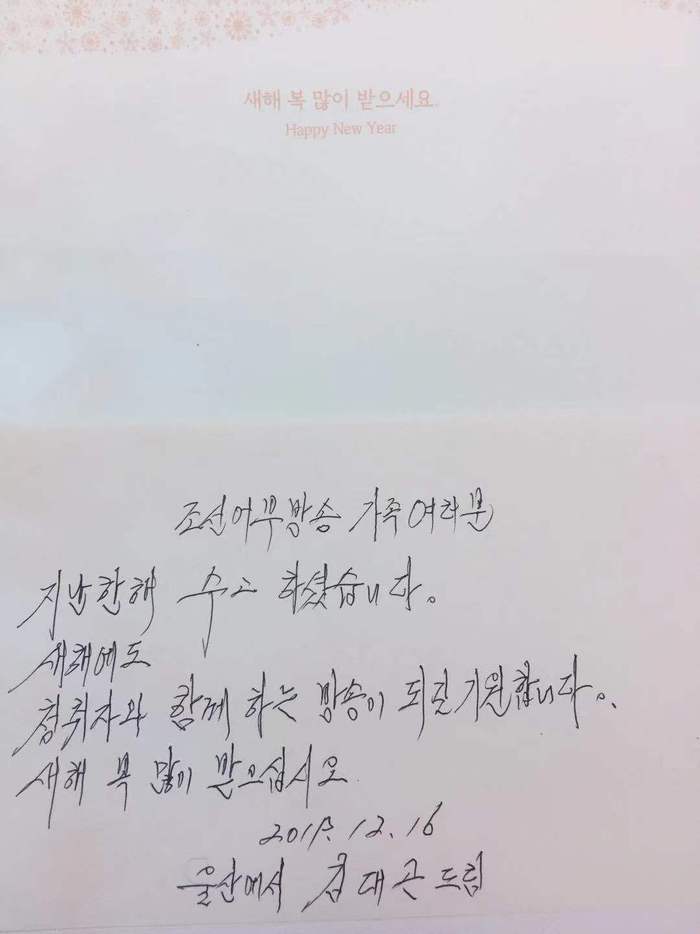 새해 복 많이 받으세요.
Happy New Year
조선어부방송 가족여러분
지난한해 수고 하셨습니다.
새해에도
청취자와 함께 하는 방송이 되길 기원합니다.
새해 복 많이 받으십시오
12.16
울산에서 김대근 드림